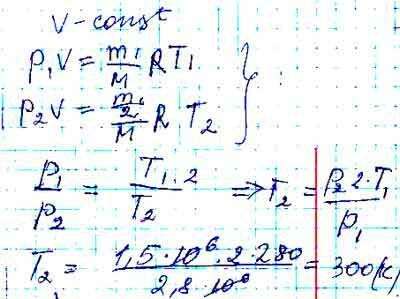 V-const
P₁V = m₁/M RT₁
P₂V = m₁/2/M R T₂
P₁/P₂ = T₁·2/T₂ => T₂ = P₂2·T₁/P₁
T₂ = 1,5·10⁶·2·280/2,8·10⁶ = 300(К)